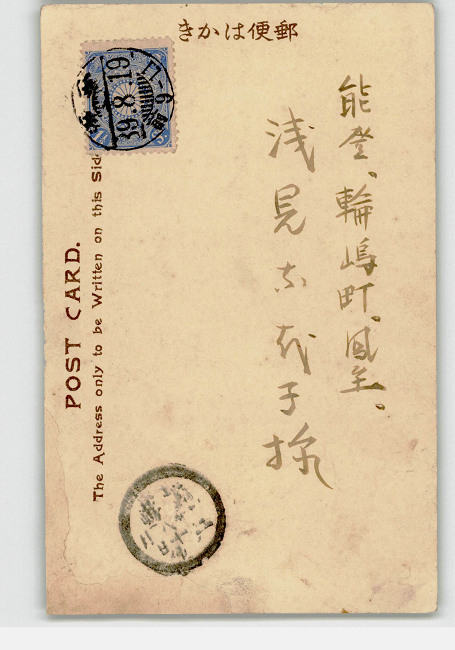 郵便はかき
能登、輪嶋町、鳳至。
浅見志げ子様
POST CARD.
The Address only to be Written on this Side
39.8.19